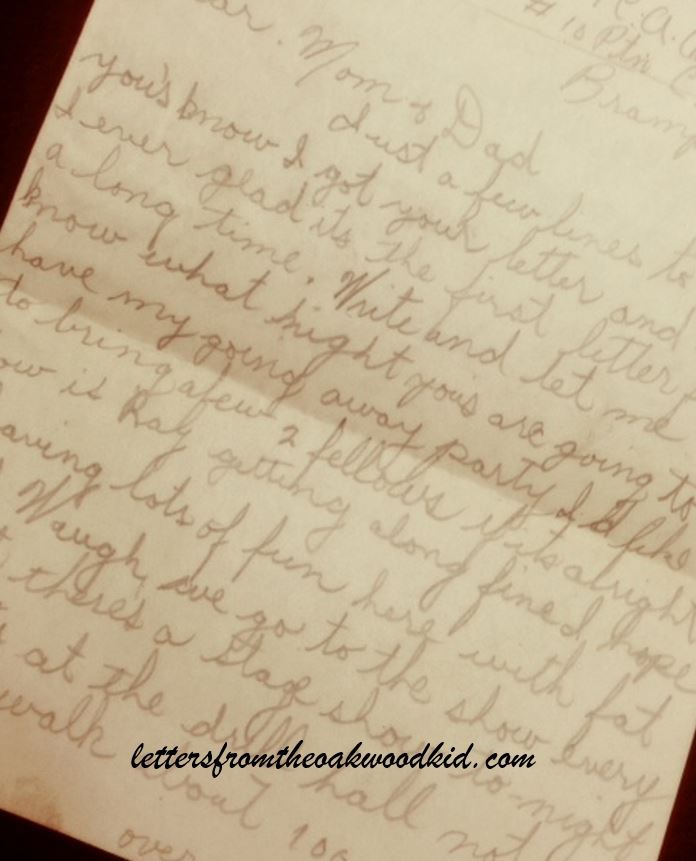 R.A.
# 10 Ptn C
Bramp
ar. Mom & Dad
Just a few lines to
you's know I got your letter and
I ever glad its the first letter
a long time. Write and let me
know what night yous are going to
have my going away party I'd like
to bring a few 2 fellows if its alright
ow is Ray getting along fined hope
aving lots of fun here with fat
Waugh, we go to the show every
there's a stag show to night
at the drill hall not
walk about 100
over
lettersfromtheoakwoodkid.com